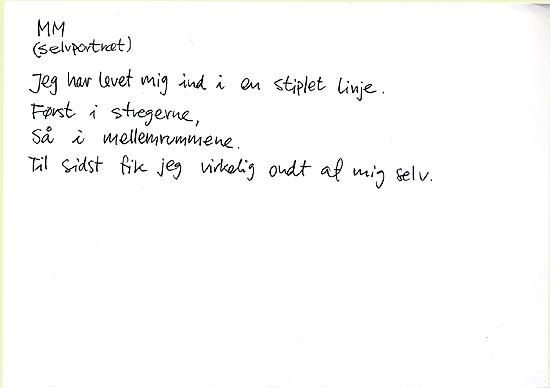 MM
(selvportræt)
Jeg har levet mig ind i en stiplet linje.
Først i stregerne,
Så i mellemrummene.
Til sidst fik jeg virkelig ondt af mig selv.